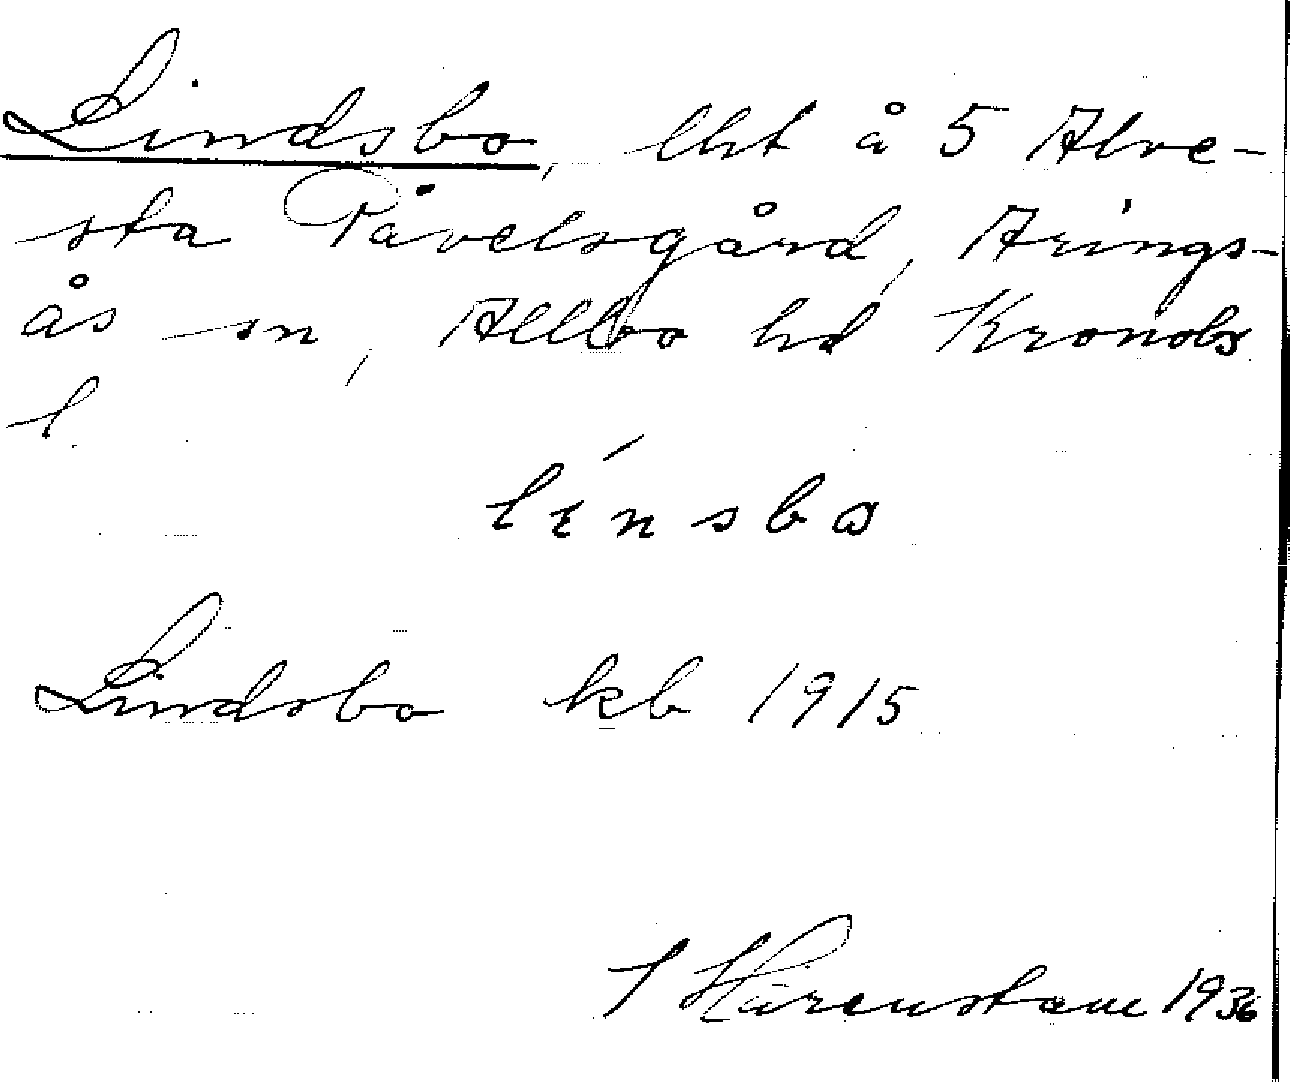 Lindsbo, lht å 5 Alve-
sta Påvelsgård, Arings-
ås sn, Allbo hd Kronobs
l.
línsbo
Lindsbo kb 1915
I Härenstam 1936